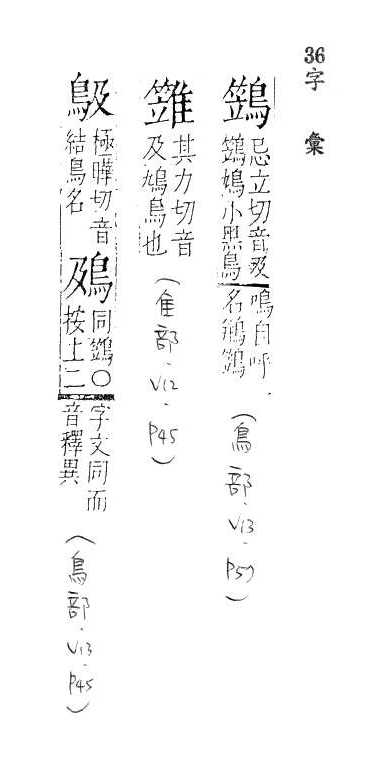 36字 彙
鷑
忌立切音及鳴自呼
鷑鳩小黑鳥名鵧鷑
(鳥部.V13.P59)
其力切音
及鳩鳥也
(隹部.V12.P45)
極曄切音
結鳥名
同鷑○字文同而
按上二音釋異
(鳥部.V13.P45)